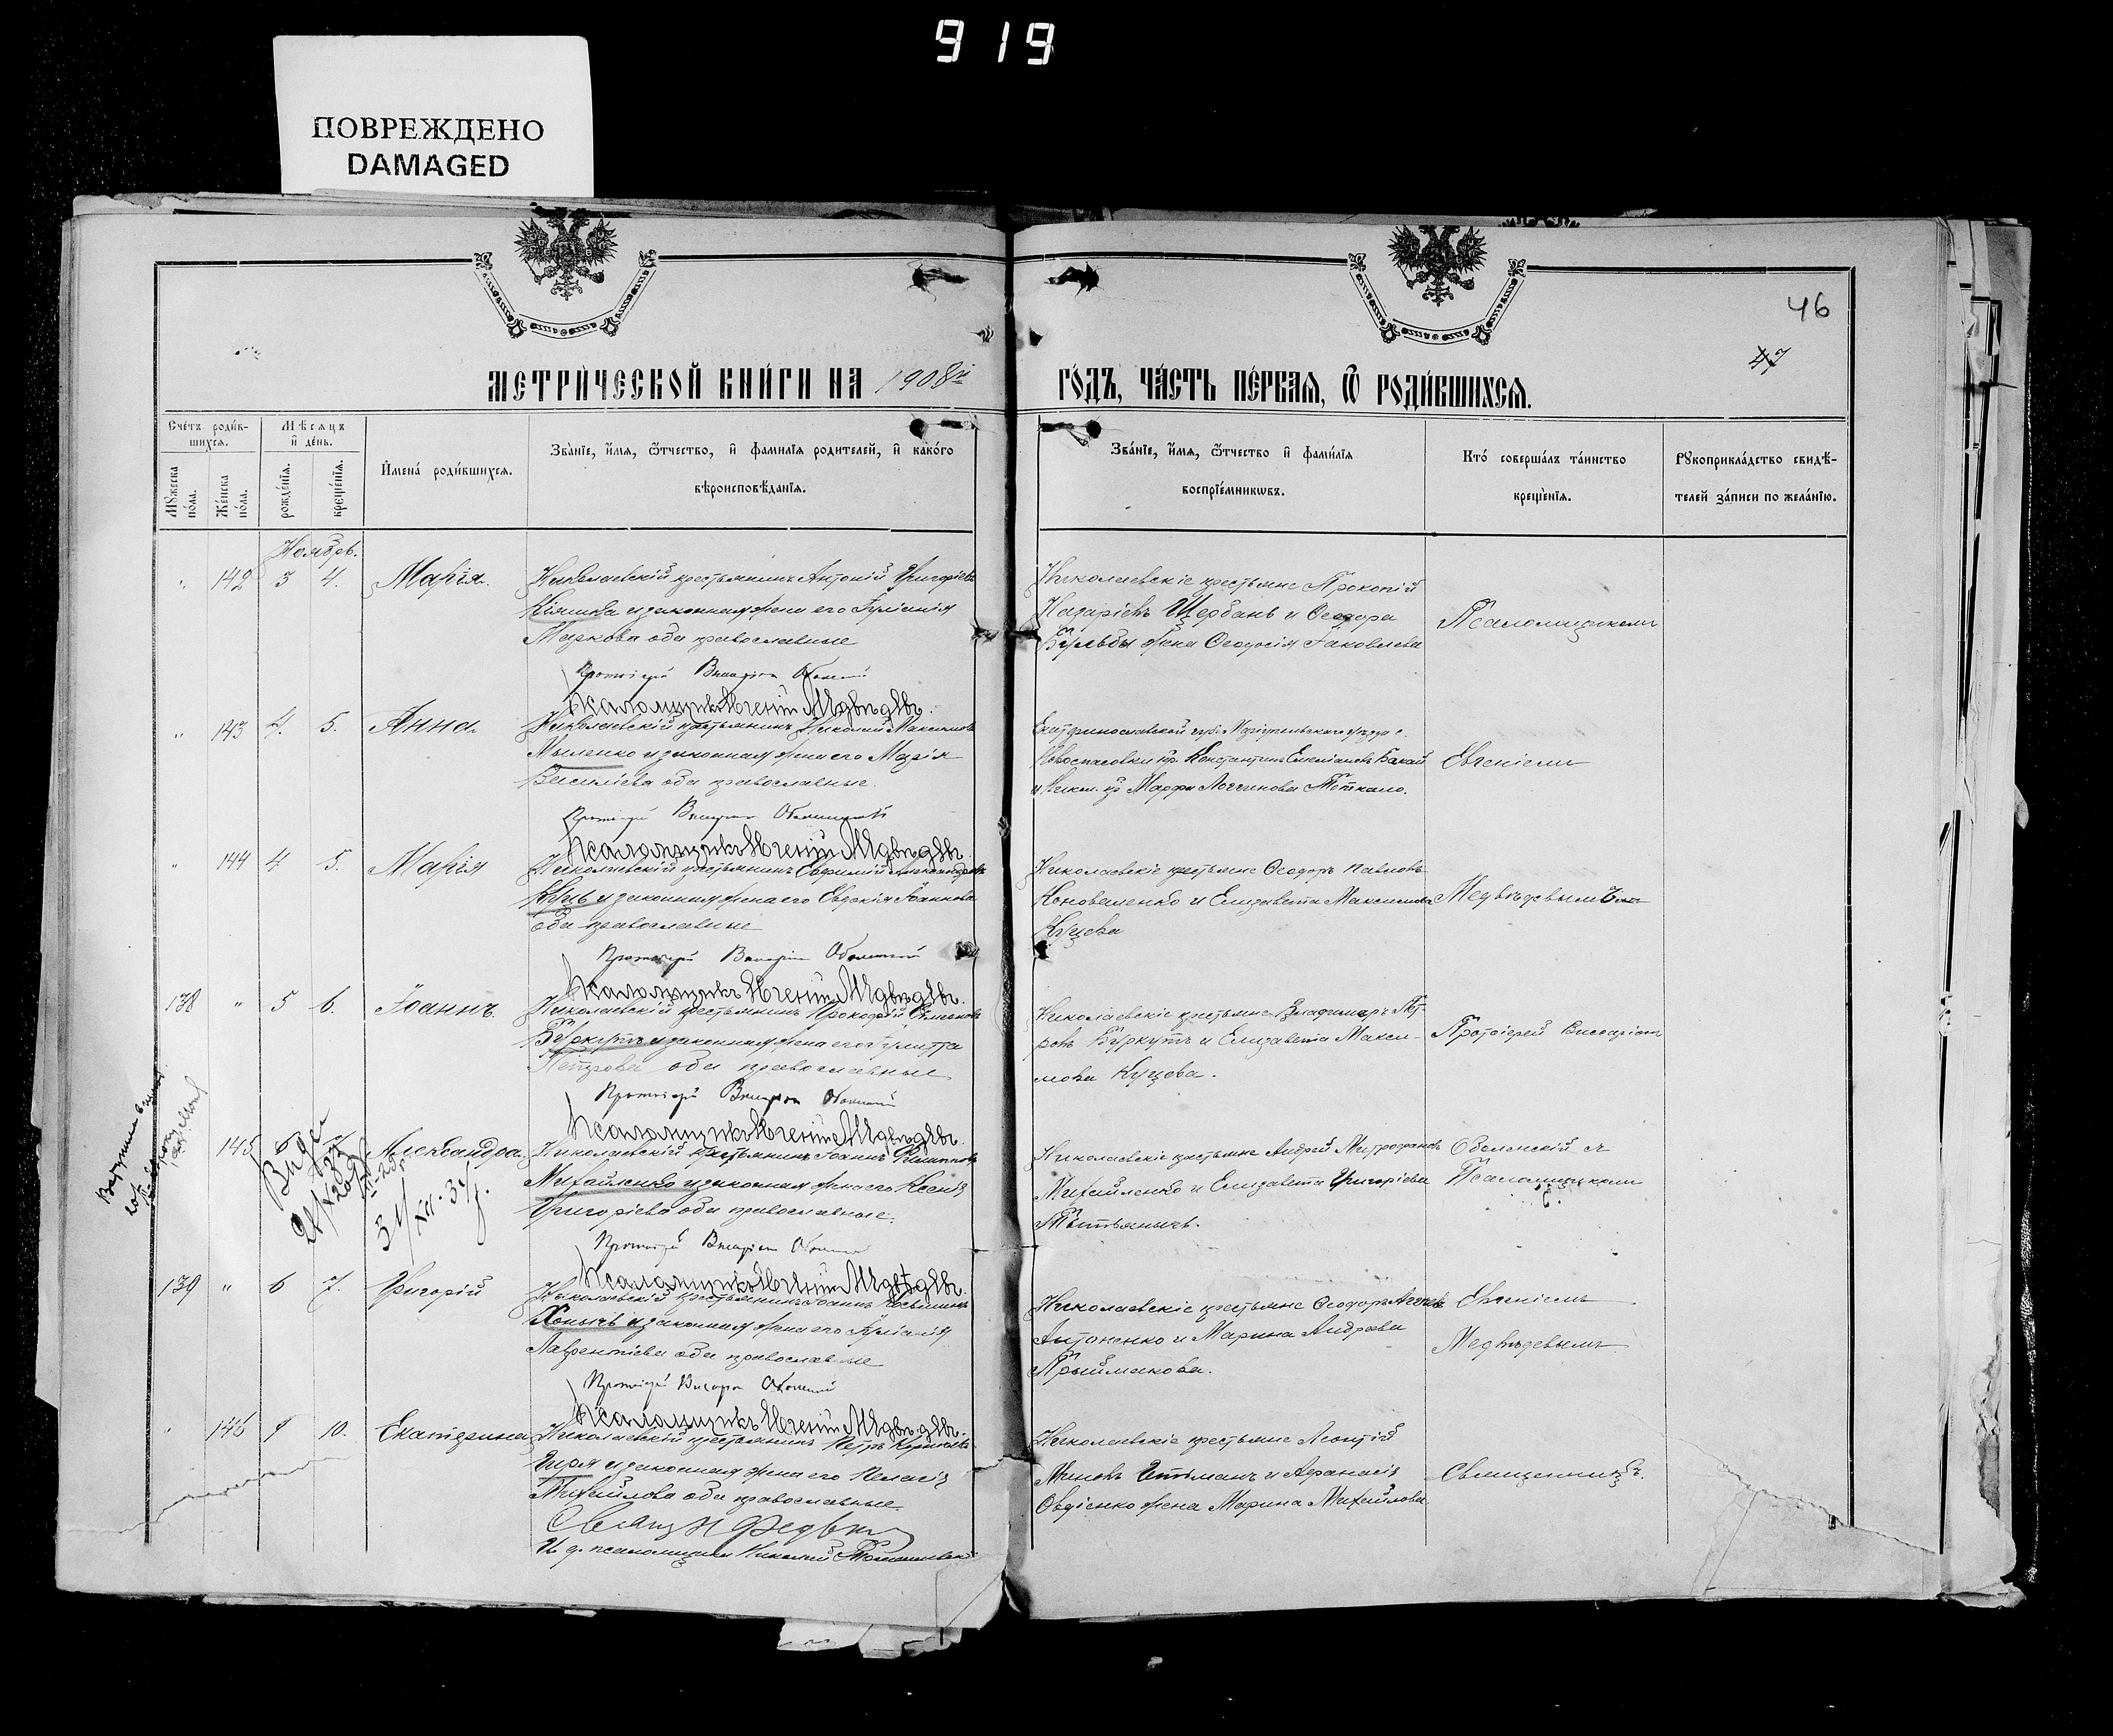 919
ПОВРЕЖДЕНО
DAMAGED
46
47
МЕТРИ́ЧЕСКОЙ КНИ́ГИ НА 1908й ГО́ДЪ, ЧА́СТЬ ПЕ́РВАЯ, Ѽ РОДИ́ВШИХСЯ.
Сче́тъ роди́вшихся.
Мꙋ́жеска по́ла.
Же́нска по́ла.
Мѣсяцъ и҆ де́нь.
рожде́нїя.
креще́нїя.
И҆мена̀ роди́вшихся.
Зва́нїе, и҆́мя, ѻ҆́тчество, и҆ фамилїя родителей, и҆ како́го
вѣроисповѣданїя.
Зва́нїе, и҆́мя, ѻ҆́тчество и҆ фами́лїя
воспрїе́мникѡвъ.
Кто̀ соверша́лъ та́инство
креще́нїя.
Рꙋкоприкла́дство свидѣ-
телей за́писи по жела́нїю.
Ноябрь.
" 142 3 4. Марія.
Николаевскій крестьянинъ Антоній Григоріевъ
Кіяшко и законная жена его Іуліанія
Маркова оба православные
Протоіерей Виссаріонъ Оболенскій
Псаломщикъ Евгеній Медвѣдевъ.
Николаевскіе крестьяне Прокопій
Назаріевъ Щербань и Ѳеодора
Бульбы жена Ѳеодосія Іаковлева
Псаломщикомъ
" 143 4. 5. Анна
Николаевскій крестьянинъ Николай Максимовъ
и законная жена его Марія
Василіева оба православные.
Протоіерей Виссаріонъ Оболенскій
Псаломщикъ Евгеній Медвѣдевъ.
Екатеринославской губ. Маріупольскаго уѣзда с.
Новоспасовки кр. Константинъ Емеліановъ Бакай
и Никол. кр. Марфа Логгинова
Евгеніемъ
" 144 4 5. Марія
Николаевскій крестьянинъ Евфимій Александровъ
Куць и законная жена его Евдокія Іоаннова
оба православные
Протоіерей Виссаріонъ Оболенскій
Псаломщикъ Евгеній Медвѣдевъ.
Николаевскіе крестьяне Ѳеодоръ Павловъ
Коноваленко и Елизавета Максимова
Куцева
Медвѣдевымъ
138 " 5 6. Іоаннъ.
Николаевскій крестьянинъ Прокофій Симеоновъ
Буркутъ и законная жена его Іулитта
Петрова оба православные
Протоіерей Виссаріонъ Оболенскій
Псаломщикъ Евгеній Медвѣдевъ.
Николаевскіе крестьяне Владимиръ Пет-
ровъ Буркутъ и Елизавета Макси-
мова Куцева.
Протоіерей Виссаріонъ
145 6 7 Александра.
Николаевскій крестьянинъ Іоаннъ Филипповъ
Михайленко и законная жена его Ксенія
Григоріева оба православные.
Протоіерей Виссаріонъ Оболенскій
Псаломщикъ Евгеній Медвѣдевъ.
Николаевскіе крестьяне Андрей Митрофановъ
Михайленко и Елизавета Григоріева
Оболенскій съ
Псаломщикомъ
139 " 6 7. Григорій
Николаевскій крестьянинъ Іоаннъ
и законная жена его Іуліанія
Лаврентіева оба православные
Протоіерей Виссаріонъ Оболенскій
Псаломщикъ Евгеній Медвѣдевъ.
Николаевскіе крестьяне Ѳеодоръ
Антоненко и Марина Андреева
Прыймакова.
Евгеніемъ
Медвѣдевымъ
" 146 9 10. Екатерина
Николаевскій крестьянинъ Петръ Корниліевъ
и законная жена его Пелагія
Михайлова оба православные.
И. д. псаломщика Николай
Николаевскіе крестьяне Леонтій
Миновъ Гетманъ и Аѳанасія
Овдіенко жена Марина Михайлова.
Священникъ.